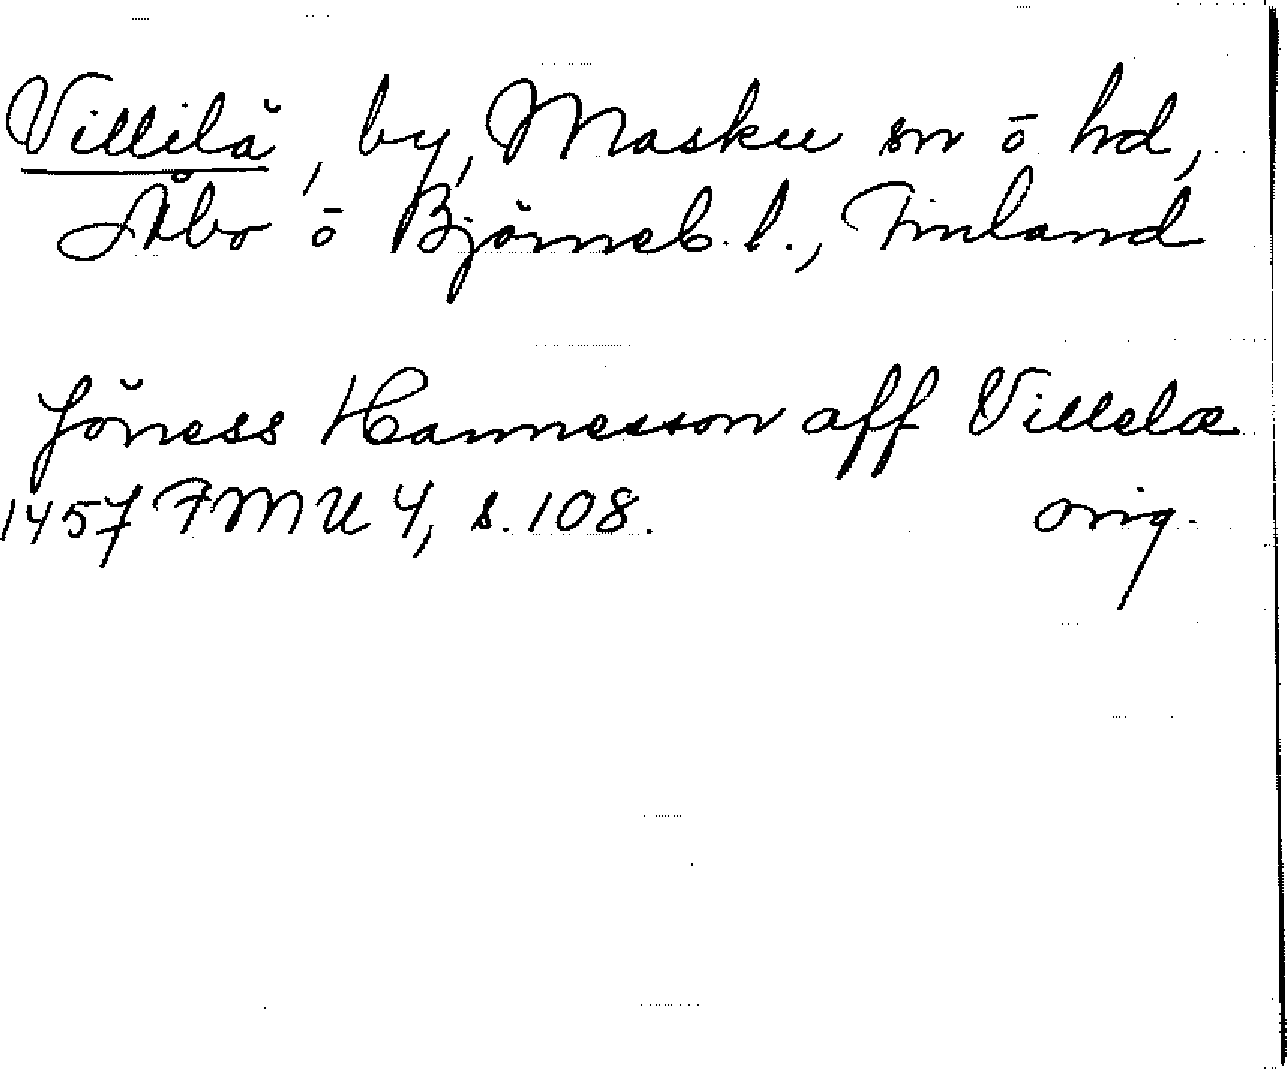 Villilä, by, Masku sn o hd,
Åbo o Björneb. l., Finland
Jöness Hannesson aff Villelæ
1457 FMU 4, s. 108. orig.